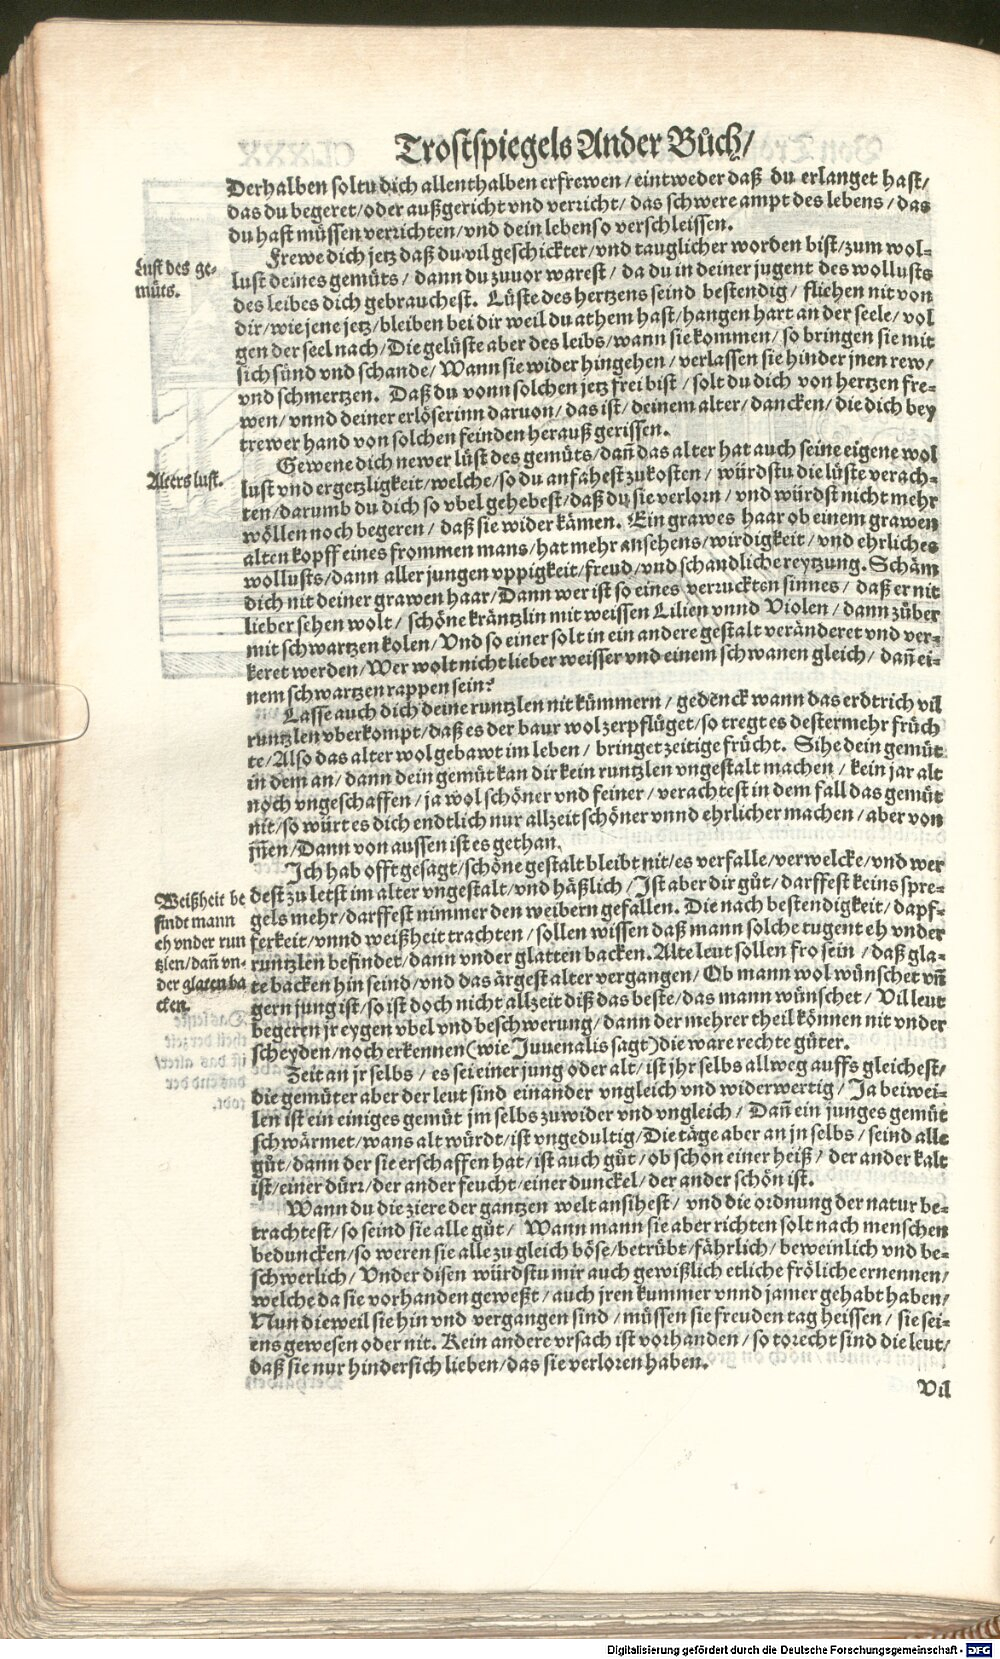 Trostspiegels Ander Bůch/
Derhalben soltu dich allenthalben erfrewen/ eintweder daß du erlanget hast/
das du begeret/ oder außgericht vnd verricht/ das schwere ampt des lebens/ das
du hast müssen verrichten/ vnd dein leben so verschleissen.
Frewe dich jetz daß du vil geschickter/ vnd tauglicher worden bist/ zum wol-
Lust des ge-
müts.
lust deines gemüts/ dann du zuuor warest/ da du in deiner jugent des wollusts
des leibes dich gebrauchest. Lüste des hertzens seind bestendig/ fliehen nit von
dir/ wie jene jetz/ bleiben bei dir weil du athem hast/ hangen hart an der seele/ vol
gen der seel nach/ Die gelüste aber des leibs/ wann sie kommen/ so bringen sie mit
sich sünd vnd schande/ Wann sie wider hingehen/ verlassen sie hinder jnen rew/
vnd schmertzen. Daß du vonn solchen jetz frei bist/ solt du dich von hertzen fre-
wen/ vnnd deiner erlöserinn daruon/ das ist/ deinem alter/ dancken/ die dich bey
trewer hand von solchen feinden herauß gerissen.
Gewene dich newer lüst des gemüts/ dañ das alter hat auch seine eigene wol
Alters lust.
lust vnd ergetzligkeit/ welche/ so du anfahest zukosten/ würdstu die lüste verach-
ten/ darumb du dich so vbel gehebest/ daß du sie verlorn/ vnd würdst nicht mehr
wöllen noch begeren/ daß sie wider kämen. Ein grawes haar ob einem grawen
alten kopff eines frommen mans/ hat mehr ansehens/ wirdigkeit/ vnd ehrliches
wollusts/ dann aller jungen vppigkeit/ freud/ vnd schandliche reytzung. Schäm
dich nit deiner grawen haar/ Dann wer ist so eines verzuckten sinnes/ daß er nit
lieber sehen wolt/ schöne kräntzlin mit weissen Lilien vnnd Violen/ dann züber
mit schwartzen kolen/ Vnd so einer solt in ein andere gestalt veränderet vnd ver-
keret werden/ Wer wolt nicht lieber weisser vnd einem schwanen gleich/ dañ ei-
nem schwartzen rappen sein?
Lasse auch dich deine runtzlen nit kümmern/ gedenck wann das erdtrich vil
runtzlen vberkompt/ daß es der baur wol zerpflüget/ so tregt es destermehr früch
te/ Also das alter wol gebawt im leben/ bringet zeitige frücht. Sihe dein gemüt
in dem an/ dann dein gemüt kan dir kein runtzlen vngestalt machen/ kein jar alt
noch vngeschaffen/ ja wol schöner vnd feiner/ verachtest in dem fall das gemüt
nit/ so würt es dich endtlich nur allzeit schöner vnnd ehrlicher machen/ aber von
jñen/ Dann von aussen ist es gethan.
Ich hab offt gesagt/ schöne gestalt bleibt nit/ es verfalle/ verwelcke/ vnd wer
Weißheit be
findt mann
eh vnder run
tzlen/ dañ vn-
der glaten ba
cken.
dest zu letst im alter vngestalt/ vnd häßlich/ Ist aber dir gůt/ darffest keins spre-
gels mehr/ darffest nimmer den weibern gefallen. Die nach bestendigkeit/ dapf-
ferkeit/ vnnd weißheit trachten/ sollen wissen daß mann solche tugent eh vnder
runtzlen befindet/ dann vnder glatten backen. Alte leut sollen fro sein/ daß gla-
te backen hin seind/ vnd das ärgest alter vergangen/ Ob mann wol wünschet vñ
gern jung ist/ so ist doch nicht allzeit diß das beste/ das mann wünschet/ Vil leut
begeren jr eygen vbel vnd beschwerung/ dann der mehrer theil können nit vnder
scheyden/ noch erkennen (wie Juuenalis sagt) die ware rechte güter.
Zeit an jr selbs/ es sei einer jung oder alt/ ist jhr selbs allweg auffs gleichest/
die gemüter aber der leut sind einander vngleich vnd widerwertig/ Ja beiwei-
len ist ein einiges gemüt jm selbs zuwider vnd vngleich/ Dañ ein junges gemüt
schwärmet/ wans alt würdt/ ist vngedultig/ Die täge aber an jn selbs/ seind alle
gůt/ dann der sie erschaffen hat/ ist auch gůt/ ob schon einer heiß/ der ander kalt
ist/ einer dürr/ der ander feucht/ einer dunckel/ der ander schön ist.
Wann du die ziere der gantzen welt ansihest/ vnd die ordnung der natur be-
trachtest/ so seind sie alle gůt/ Wann mann sie aber richten solt nach menschen
beduncken/ so weren sie alle zu gleich böse/ betrübt/ fährlich/ beweinlich vnd be-
schwerlich/ Vnder disen würdstu mir auch gewißlich etliche fröliche ernennen/
welche da sie vorhanden geweßt/ auch jren kummer vnnd jamer gehabt haben/
Nun dieweil sie hin vnd vergangen sind/ müssen sie freuden tag heissen/ sie sei-
ens gewesen oder nit. Kein andere vrsach ist vorhanden/ so torecht sind die leut/
daß sie nur hindersich lieben/ das sie verloren haben.
Vil
Digitalisierung gefördert durch die Deutsche Forschungsgemeinschaft - DFG